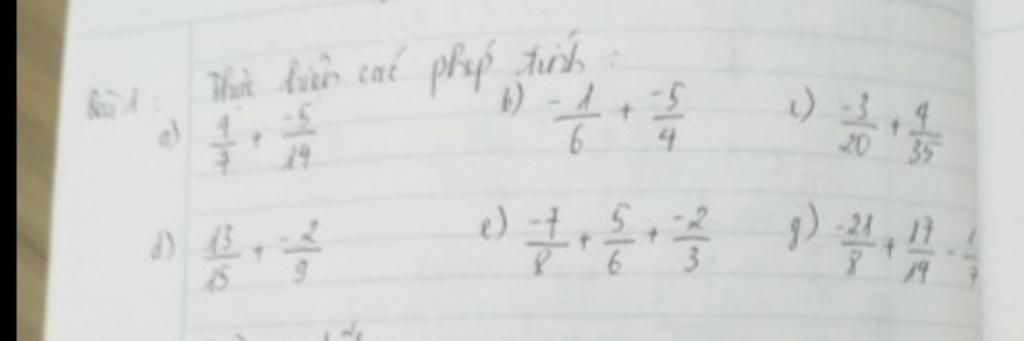 Bài 1: Thực hiện các phép tính:
a) 4/7 + -5/19 b) -1/6 + -5/4 c) -3/20 + 4/35
d) 13/15 + -2/9 e) -7/8 + 5/6 + -2/3 g) -21/8 + 17/19 -